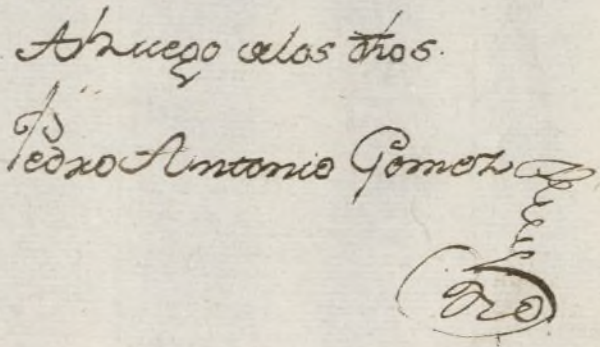 A Ruego delos dhos.
Pedro Antonio Gomez